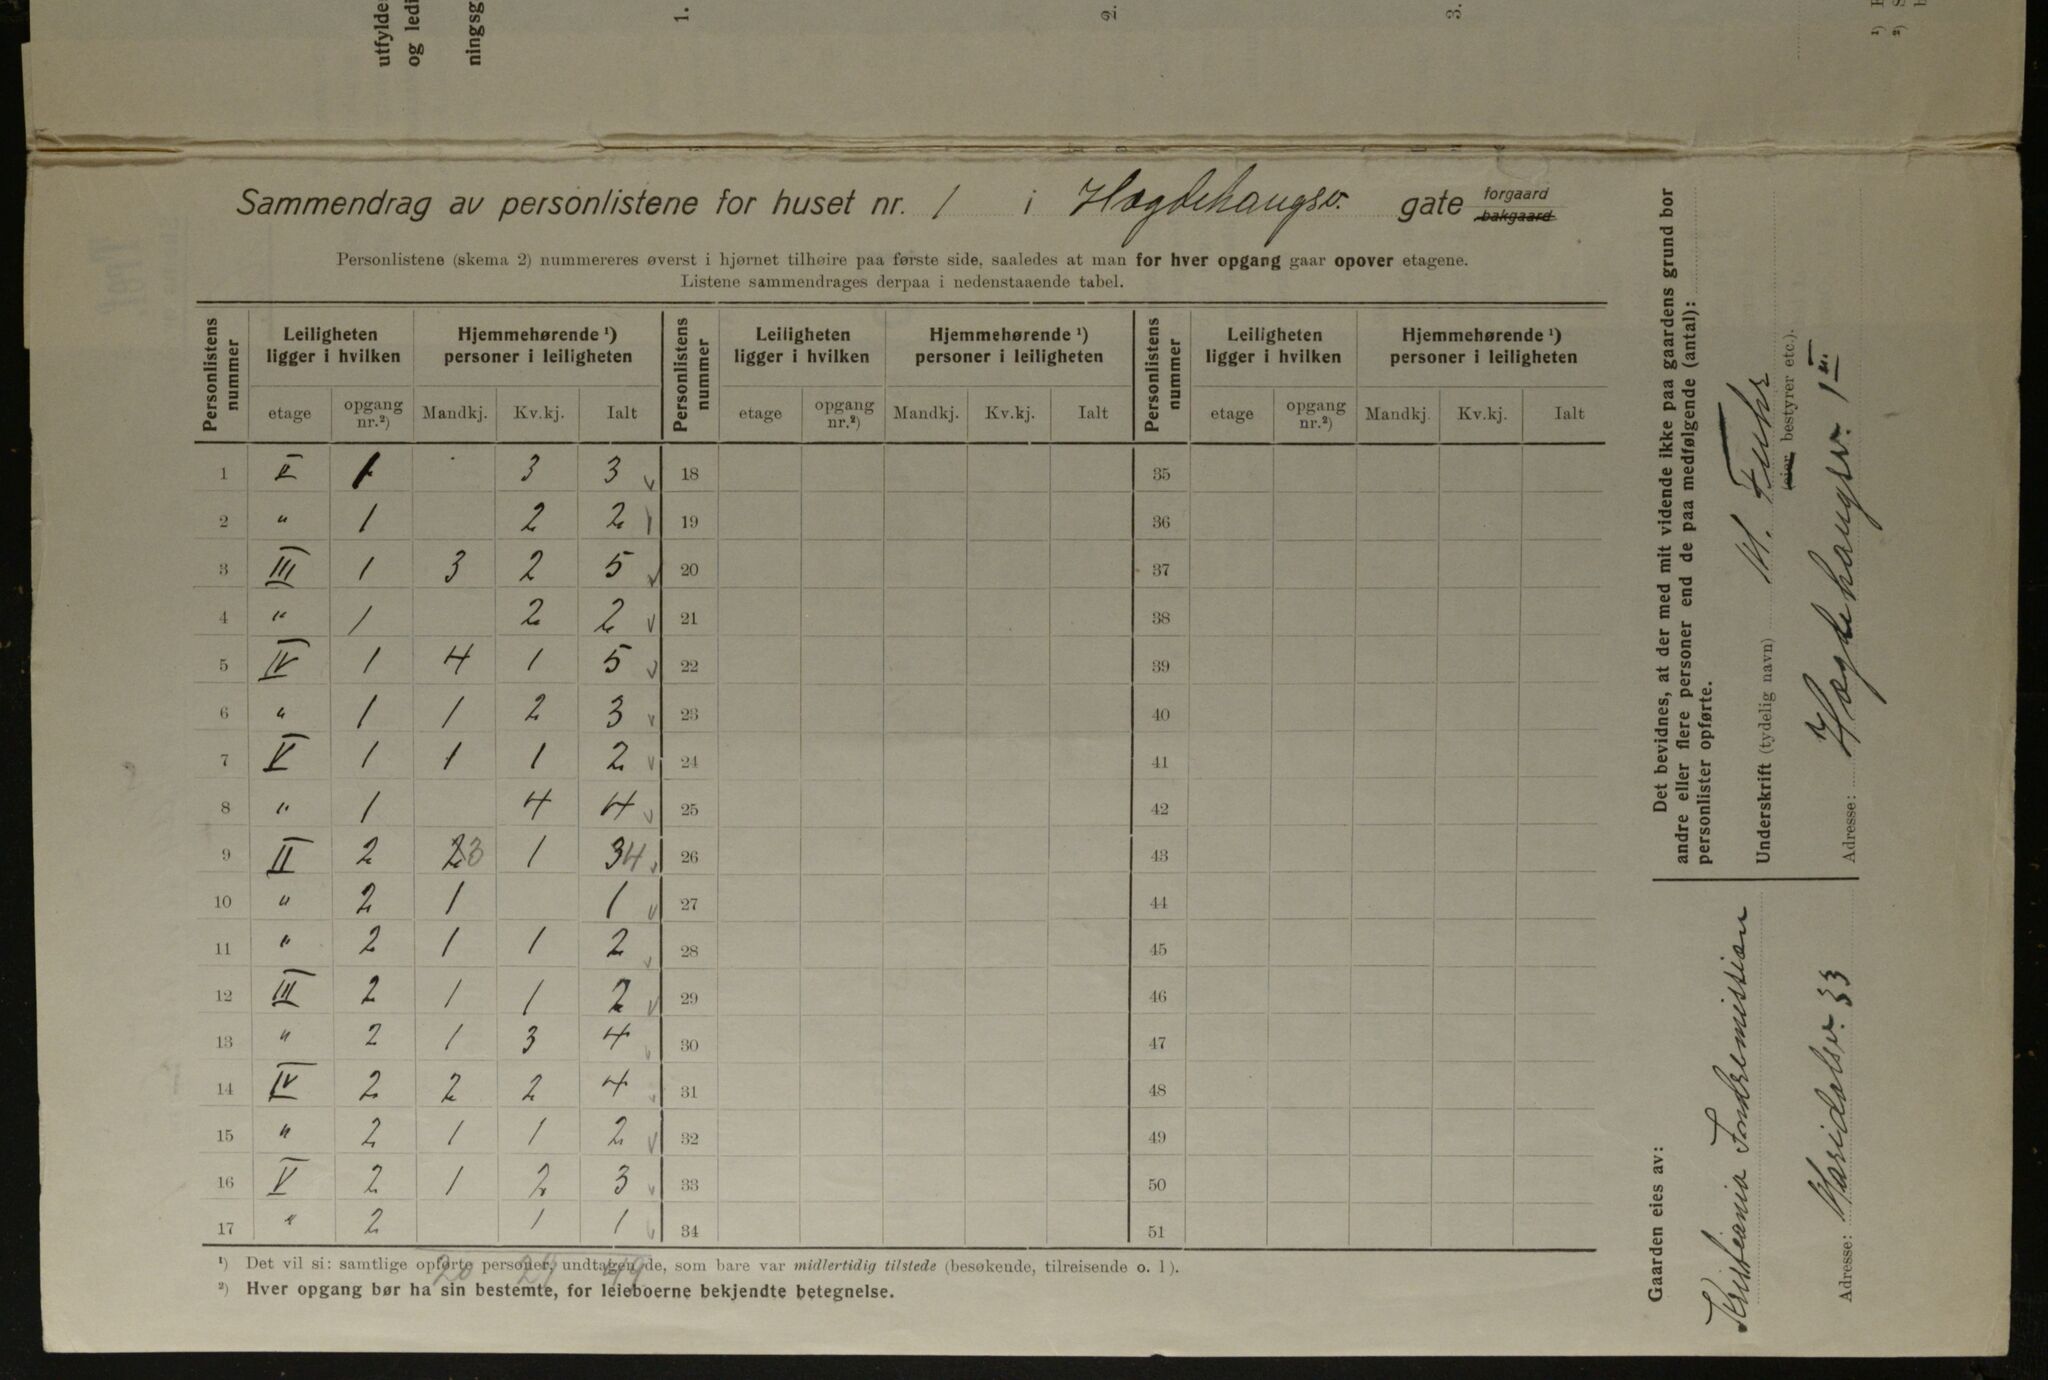 utfylde
og ledi
ningsg
1.
2.
3.
Sammendrag av personlistene for huset nr. 1 i Hægdehaugsv. gate forgaard bakgaard
Personlistene (skema 2) nummereres øverst i hjørnet tilhøire paa første side, saaledes at man for hver opgang gaar opover etagene.
Listene sammendrages derpaa i nedenstaaende tabel.
Personlistens nummer | Leiligheten ligger i hvilken | Hjemmehørende ¹) personer i leiligheten | Personlistens nummer | Leiligheten ligger i hvilken | Hjemmehørende ¹) personer i leiligheten | Personlistens nummer | Leiligheten ligger i hvilken | Hjemmehørende ¹) personer i leiligheten
etage | opgang nr.²) | Mandkj. | Kv.kj. | Ialt | etage | opgang nr.²) | Mandkj. | Kv.kj. | Ialt | etage | opgang nr.²) | Mandkj. | Kv.kj. | Ialt
1 1 3 3 18 35
2 " 1 2 2 19 36
3 III 1 3 2 5 20 37
4 " 1 2 2 21 38
5 IV 1 4 1 5 22 39
6 " 1 1 2 3 23 40
7 V 1 1 1 2 24 41
8 " 1 4 4 25 42
9 II 2 23 1 34 26 43
10 " 2 1 1 27 44
11 " 2 1 1 2 28 45
12 III 2 1 1 2 29 46
13 " 2 1 3 4 30 47
14 IV 2 2 2 4 31 48
15 " 2 1 1 2 32 49
16 V 2 1 2 3 33 50
17 " 2 1 1 34 51
20 29 49
¹) Det vil si: samtlige opførte personer, undtagen de, som bare var midlertidig tilstede (besøkende, tilreisende o. l).
²) Hver opgang bør ha sin bestemte, for leieboerne bekjendte betegnelse.
Det bevidnes, at der med mit vidende ikke paa gaardens grund bor
andre eller flere personer end de paa medfølgende (antal):
personlister opførte.
Underskrift (tydelig navn) M. Fuhr
(eier, bestyrer etc.).
Adresse: Hægdehaugsv. 1 III
Gaarden eies av:
Kristiania Indremission
Adresse: Maridalsv. 33